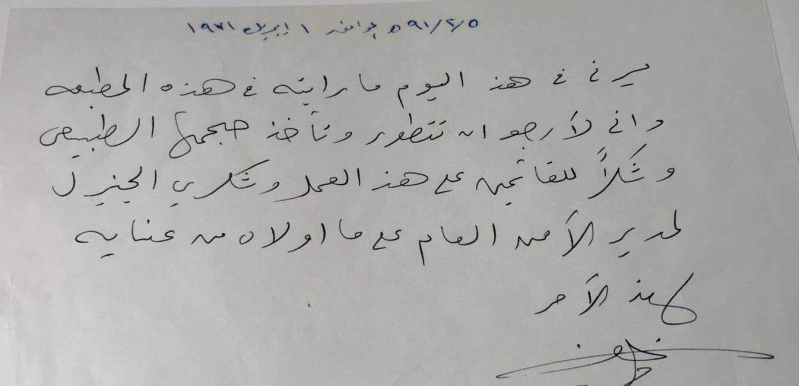 ٩١/٢/٥ه يوافق ١ ابريل ١٩٧١
يسرني في هذ اليوم ما رايته في هذه المطبعه
واني لأرجو ان تتطور وتأخذ حجمها الطبيعي
وشكراً للقائمين على هذ العمل وشكري الجزيل
لمدير الأمن العام على ما اولاه من عنايه
لهذ الأمر